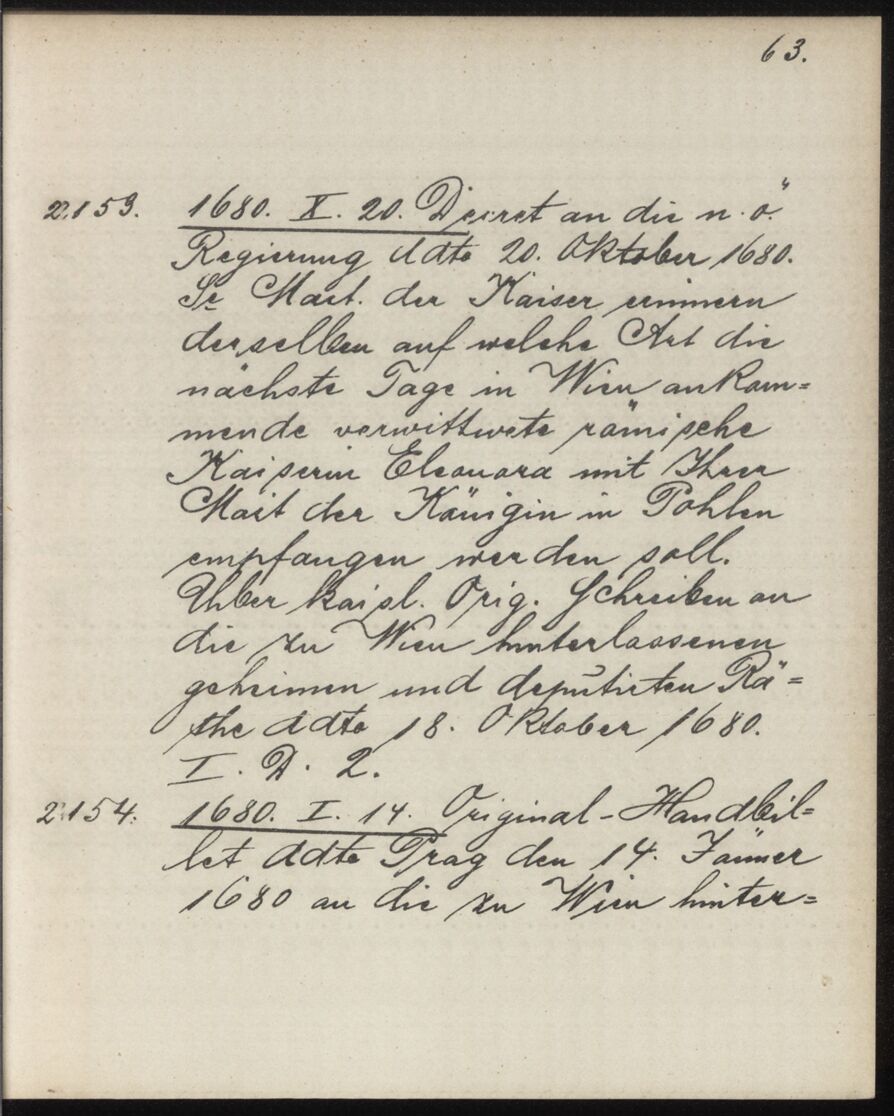 63.
2.153. 1680. X. 20. Decret an die n. ö.
Regierung ddto 20. Oktober 1680.
Se Mait. der Kaiser erinnern
derselben auf welche Art die
nächste Tage in Wien ankom=
mende verwittwete römische
Kaiserin Eleonora mit Ihrer
Mait der Königin in Pohlen
empfangen werden soll.
Uhber kaisl. Orig. Schreiben an
die zu Wien hinterlassenen
geheimen und deputirten Rä=
the ddto 18. Oktober 1680.
I. D. 2.
2.154. 1680. I. 14. Original-Handbil=
let ddto Prag den 14. Jänner
1680 an die zu Wien hinter=